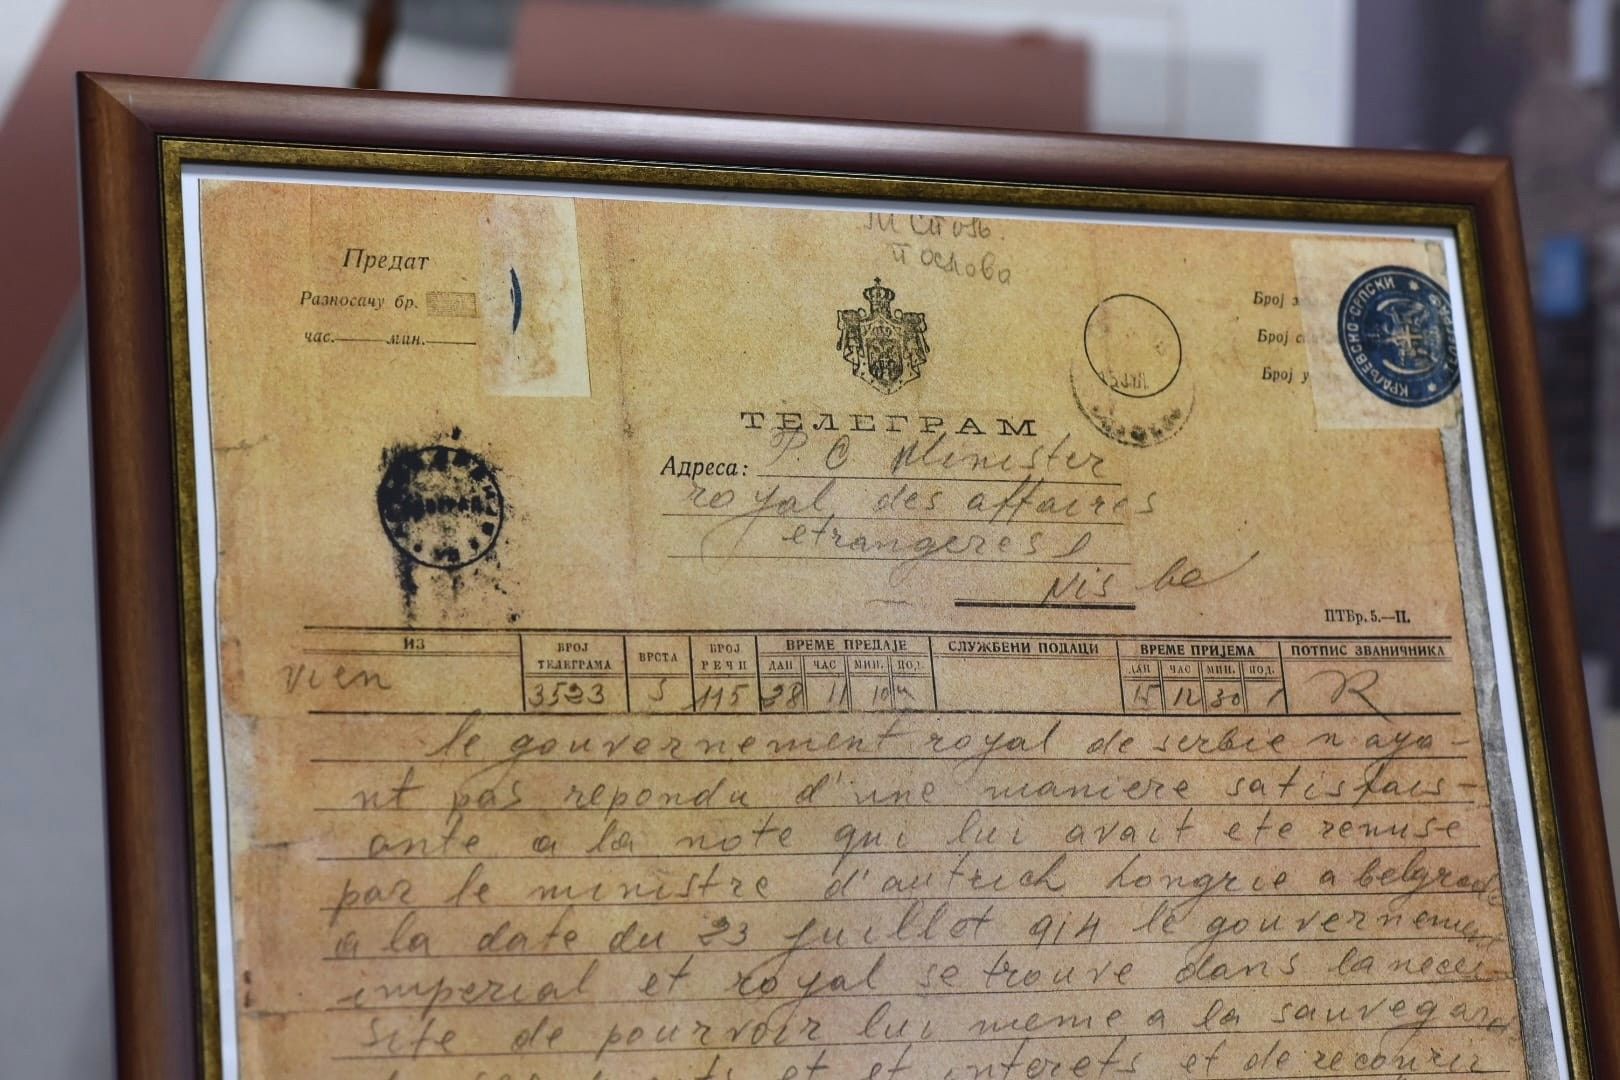 Предат
Разносачу бр.
час. мин.
послова
Број
Број
Број у
КРАЉЕВСНО-СРПСКИ
ТЕЛЕГРАМ
Адреса: P. C Minister
royal des affaires
etrangeres
Nis be
ПТБр. 5.—II.
ИЗ
БРОЈ ТЕЛЕГРАМА
ВРСТА
БРОЈ РЕЧИ
ВРЕМЕ ПРЕДАЈЕ
СЛУЖБЕНИ ПОДАЦИ
ВРЕМЕ ПРИЈЕМА
ПОТПИС ЗВАНИЧНИКА
ДАН ЧАС МИН. ПОД.
ДАН ЧАС МИН. ПОД.
Vien 3523 5 115 28 11 10 15 12 30 R
le gouvernement royal de serbie n aya-
nt pas repondu d'une maniere satisfais-
ante a la note qui lui avait ete remise
par le ministre d'autrich hongrie a belgrade
a la date du 23 juillot 914 le gouvernement
imperial et royal se trouve dans la neces-
site de pourvoir lui meme a la sauvegard
et interets et de recourir